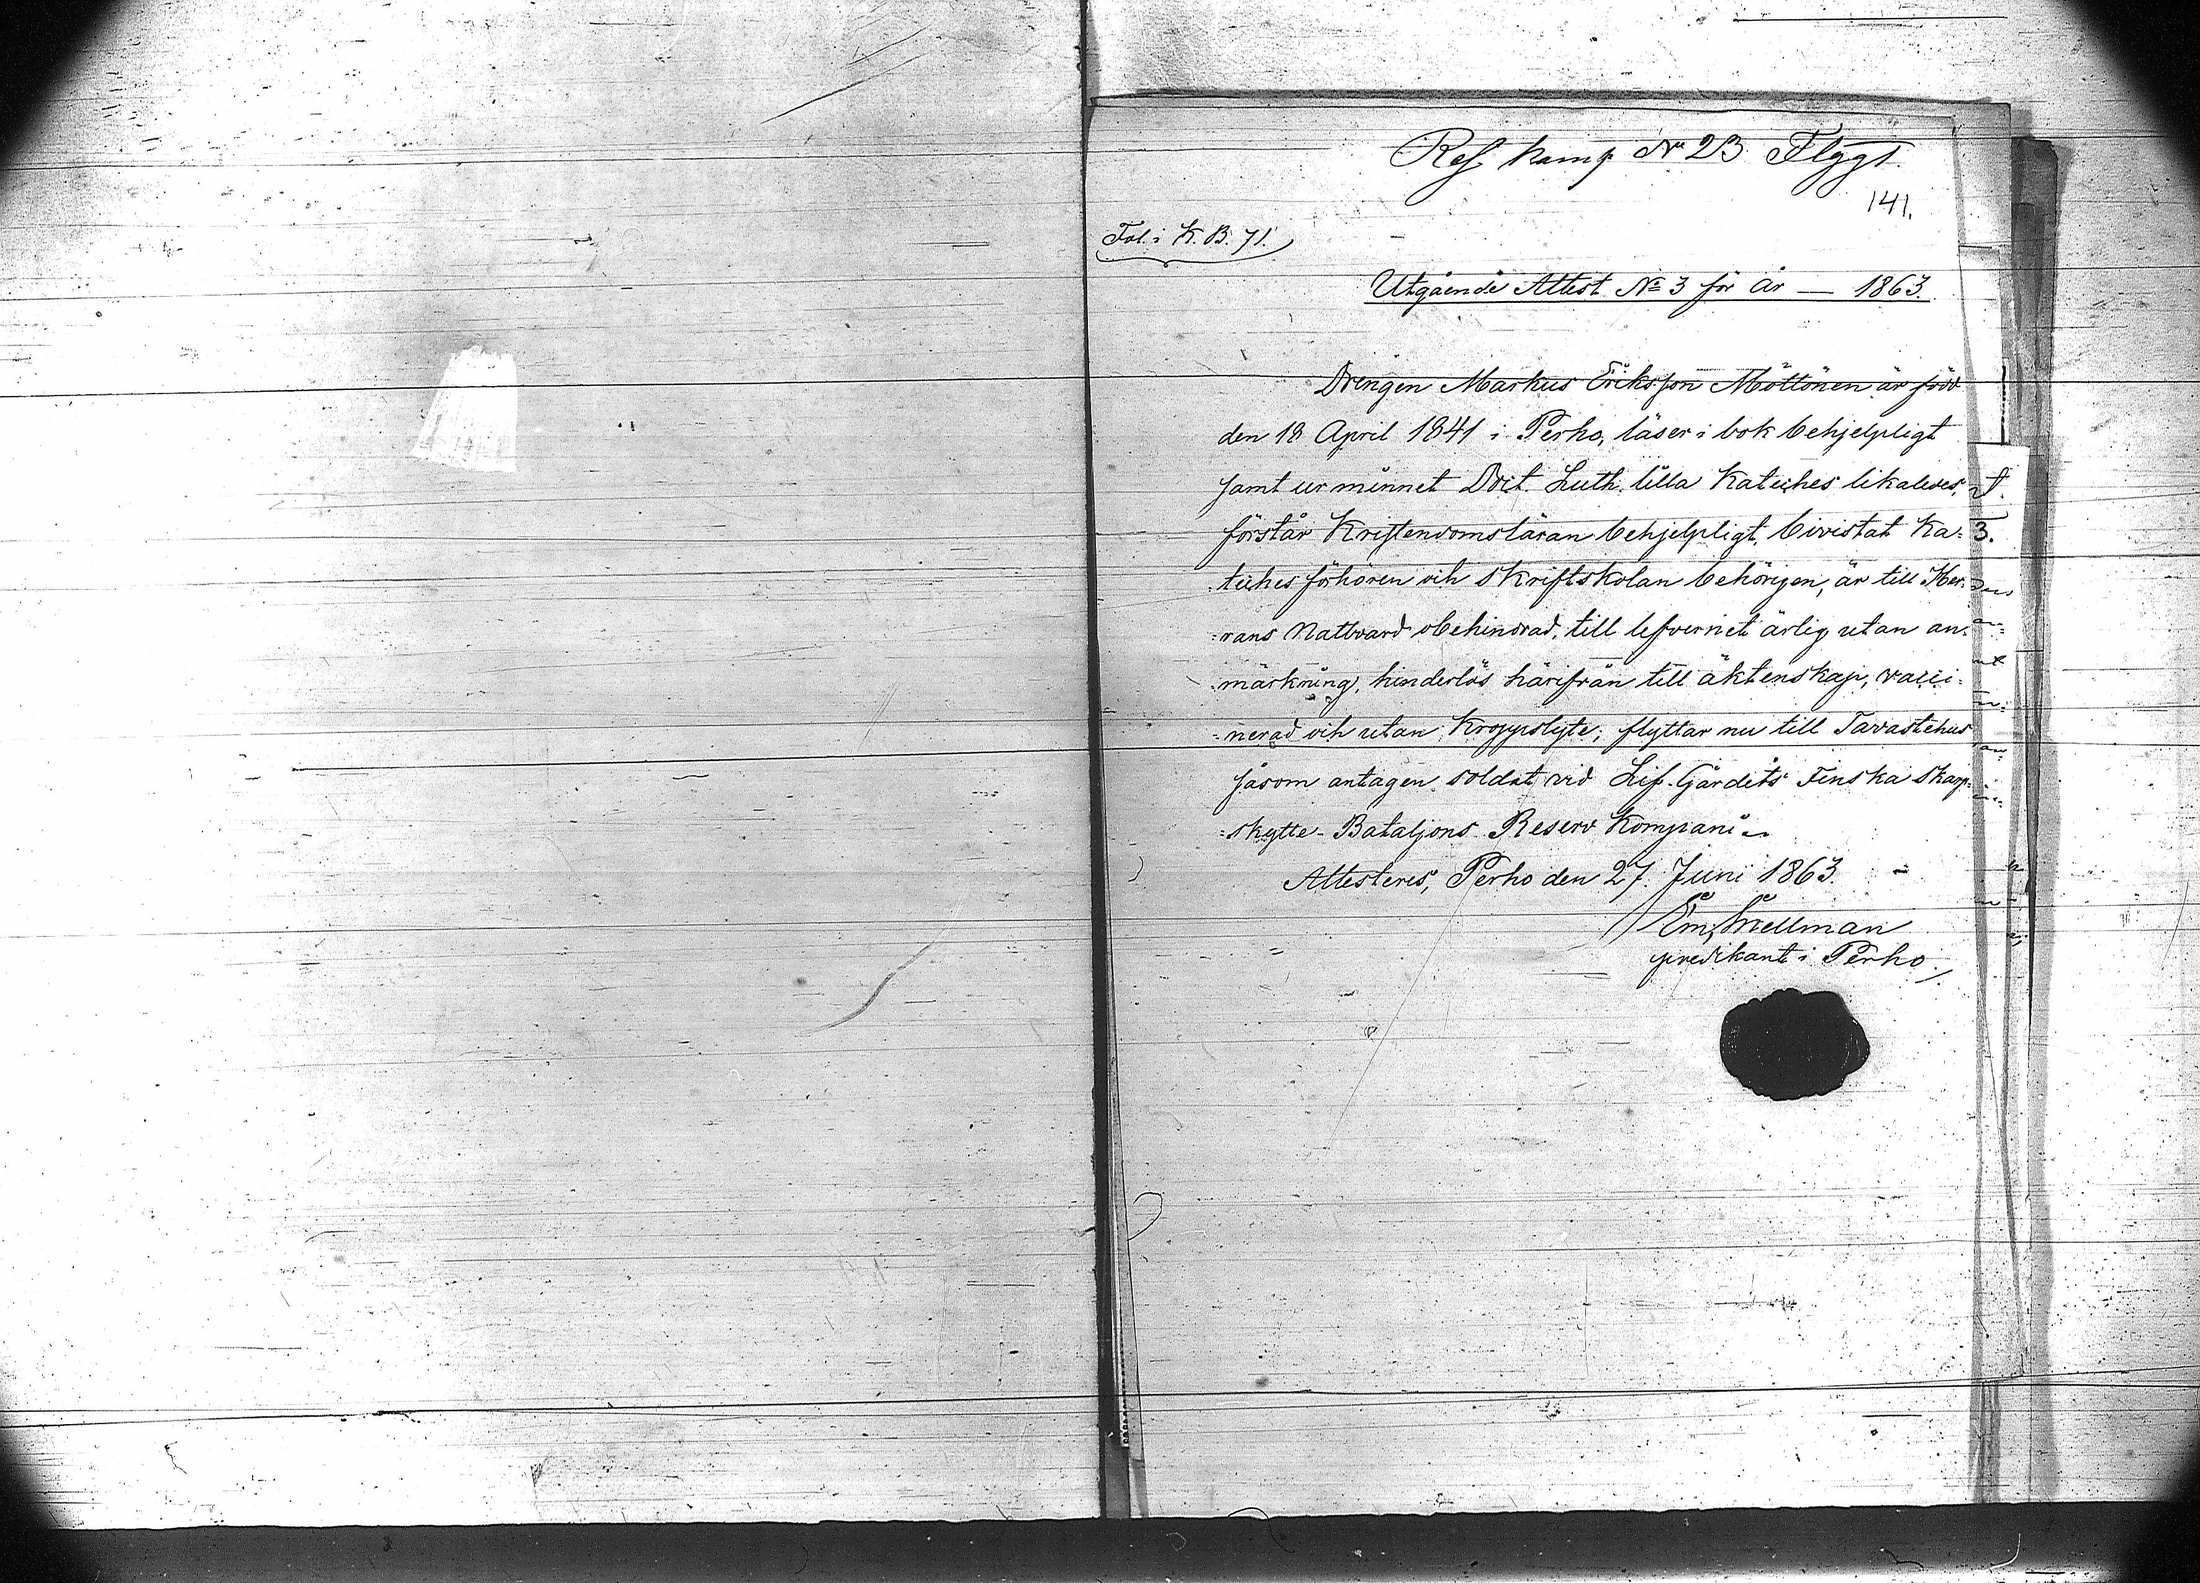 Res komp No 23 Flygt.
141.
Fol. i K. B. 71.
Utgående Attest No 3 för år — 1863.
Drengen Markus Eriksson Möttönen är född
den 18 April 1841 i Perho, läser i bok behjelpligt
samt ur minnet Doct. Luth. lilla Kateches likaledes,
förstår Kristendomsläran behjelpligt, bivistat Ka-
teches förhören och skriftskolan behörigen, är till Her-
=rans Nattvard obehindrad, till lefvernet ärlig utan an-
märkning, hinderlös härifrån till äktenskap, vacci-
=nerad och utan kroppslyte; flyttar nu till Tavastehus
såsom antagen soldat vid Lif-Gardets Finska Skarp-
=skytte-Bataljons Reserv Kompani.
Attesteres, Perho den 27. Juni 1863.
Em. Snellman
predikant i Perho